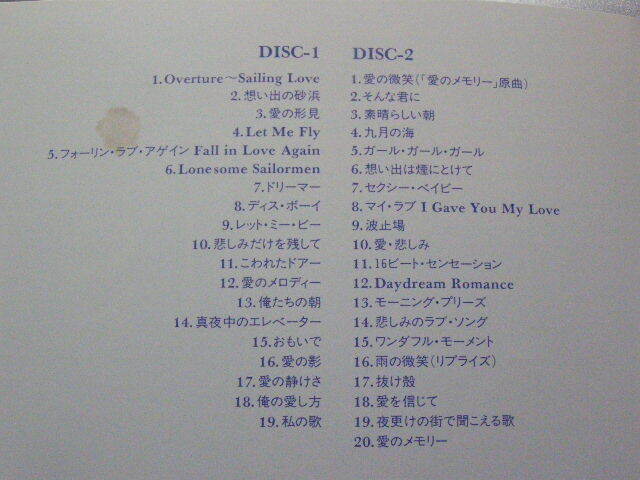 DISC-1
1.Overture〜Sailing Love
2.想い出の砂浜
3.愛の形見
4.Let Me Fly
5.フォーリン・ラブ・アゲイン Fall in Love Again
6.Lonesome Sailormen
7.ドリーマー
8.ディス・ボーイ
9.レット・ミー・ビー
10.悲しみだけを残して
11.こわれたドアー
12.愛のメロディー
13.俺たちの朝
14.真夜中のエレベーター
15.おもいで
16.愛の影
17.愛の静けさ
18.俺の愛し方
19.私の歌
DISC-2
1.愛の微笑(「愛のメモリー」原曲)
2.そんな君に
3.素晴らしい朝
4.九月の海
5.ガール・ガール・ガール
6.想い出は煙にとけて
7.セクシー・ベイビー
8.マイ・ラブ I Gave You My Love
9.波止場
10.愛・悲しみ
11.16ビート・センセーション
12.Daydream Romance
13.モーニング・プリーズ
14.悲しみのラブ・ソング
15.ワンダフル・モーメント
16.雨の微笑(リプライズ)
17.抜け殻
18.愛を信じて
19.夜更けの街で聞こえる歌
20.愛のメモリー